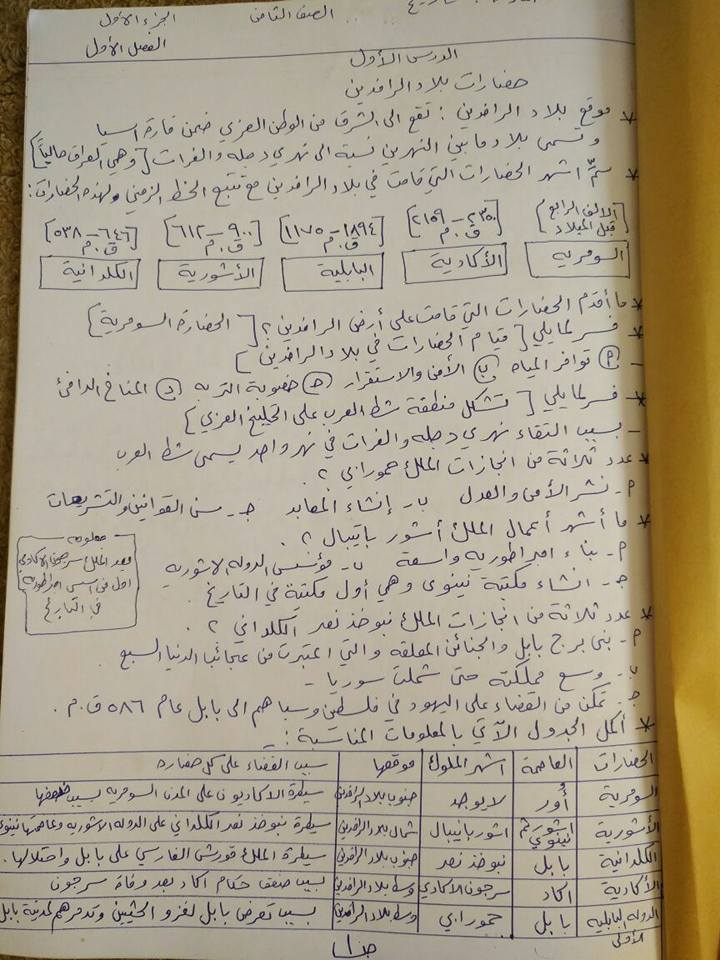 الصف الثامن
الجزء الأول
الفصل الأول
الدرس الأول
حضارات بلاد الرافدين
* موقع بلاد الرافدين : تقع الى الشرق من الوطن العربي ضمن قارة اسيا
و تسمى بلاد ما بين النهرين نسبة الى نهري دجله والفرات [وهي العراق حالياً]
* سمِّ أشهر الحضارات التي قامت في بلاد الرافدين مع تتبع الخط الزمني لهذه الحضارات :
[الألف الرابع قبل الميلاد] [٢٣٥٠ – ٢١٥٩ ق.م] [١٨٩٤ – ١١٧٥ ق.م] [٩٠٠ – ٦١٢ ق.م] [٦٤٦ – ٥٣٨ ق.م]
السومريه الأكادية البابلية الأشورية الكلدانية
* ما أقدم الحضارات التي قامت على أرض الرافدين ؟ [الحضارة السومرية]
* فسر لما يلي [قيام الحضارات في بلاد الرافدين]
- أ توافر المياه ب الأمن والاستقرار ج خصوبة التربه د المناخ الدافئ
* فسر لما يلي [تشكل منطقة شط العرب على الخليج العربي]
- بسبب التقاء نهري دجله والفرات في نهر واحد يسمى شط العرب
* عدد ثلاثة من انجازات الملك حمورابي ؟
أ- نشر الأمن والعدل ب- إنشاء المعابد ج- سن القوانين والتشريعات
* ما أشهر أعمال الملك أشور بانيبال ؟
أ- بناء امبراطوريه واسعة ب- مؤسس الدولة الاشوريه
ج- انشاء مكتبة نينوى وهي أول مكتبة في التاريخ
معلومه
الملك سرجون الاكادي
اول من اسس امبراطوريه
في التاريخ
* عدد ثلاثة من انجازات الملك نبوخذ نصر الكلداني ؟
أ- بنى برج بابل والجنائن المعلقه والتي اعتبرت من عجائب الدنيا السبع
ب- وسع مملكته حتى شملت سوريا -
ج- تمكن من القضاء على اليهود في فلسطين وسباهم الى بابل عام ٥٨٦ ق.م .
* أكمل الجدول الآتي بالمعلومات المناسبة :-
الحضارات العاصمة أشهر الملوك موقعها سبب القضاء على كل حضاره
السومرية أُور لا يوجد جنوب بلاد الرافدين سيطرة الأكاديون على المدن السومريه بسبب ضعفها
الأشورية اشور ثم نينوى اشور بانيبال شمال بلاد الرافدين سيطرة نبوخذ نصر الكلداني على الدولة الاشوريه وعاصمتها نينوى
الكلدانية بابل نبوخذ نصر جنوب بلاد الرافدين سيطرة الملك قورش الفارسي على بابل واحتلالها .
الأكادية اكاد سرجون الاكادي وسط بلاد الرافدين بسبب ضعف حكام اكاد بعد وفاة سرجون
الدوله البابليه الأولى بابل حمورابي وسط بلاد الرافدين بسبب تعرض بابل لغزو الحثيين وتدمرهم لمدينة بابل
ص ١